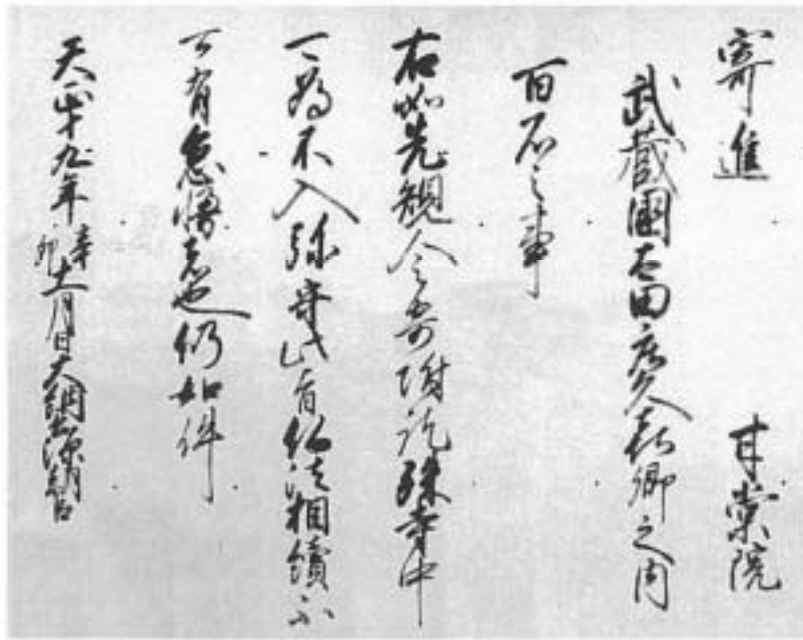 寄進 甘棠院
武蔵國太田庄久喜郷之内
百石之事
右如先規令寄附訖殊寺中
可為不入弥守此旨仏法相續不
可有怠慢者也仍如件
天正十九年辛卯十一月日大納言源朝臣